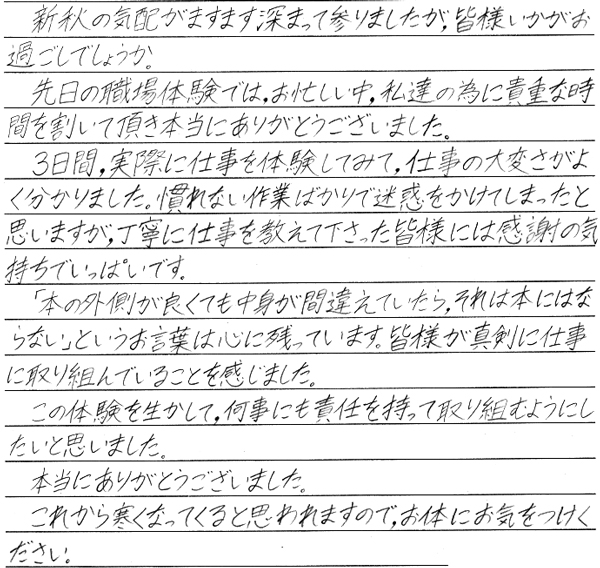 新秋の気配がますます深まって参りましたが,皆様いかがお
過ごしでしょうか。
先日の職場体験では,お忙しい中,私達の為に貴重な時
間を割いて頂き本当にありがとうございました。
3日間,実際に仕事を体験してみて,仕事の大変さがよ
く分かりました。慣れない作業ばかりで迷惑をかけてしまったと
思いますが,丁寧に仕事を教えて下さった皆様には感謝の気
持ちでいっぱいです。
「本の外側が良くても中身が間違えていたら,それは本にはな
らない」というお言葉は心に残っています。皆様が真剣に仕事
に取り組んでいることを感じました。
この体験を生かして,何事にも責任を持って取り組むようにし
たいと思いました。
本当にありがとうございました。
これから寒くなってくると思われますので,お体にお気をつけく
ださい。